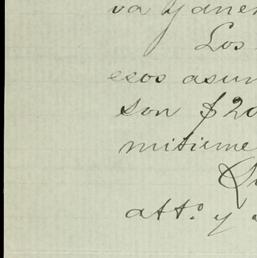 va y
Los
esos asun
son $20
mitirme
att.º y